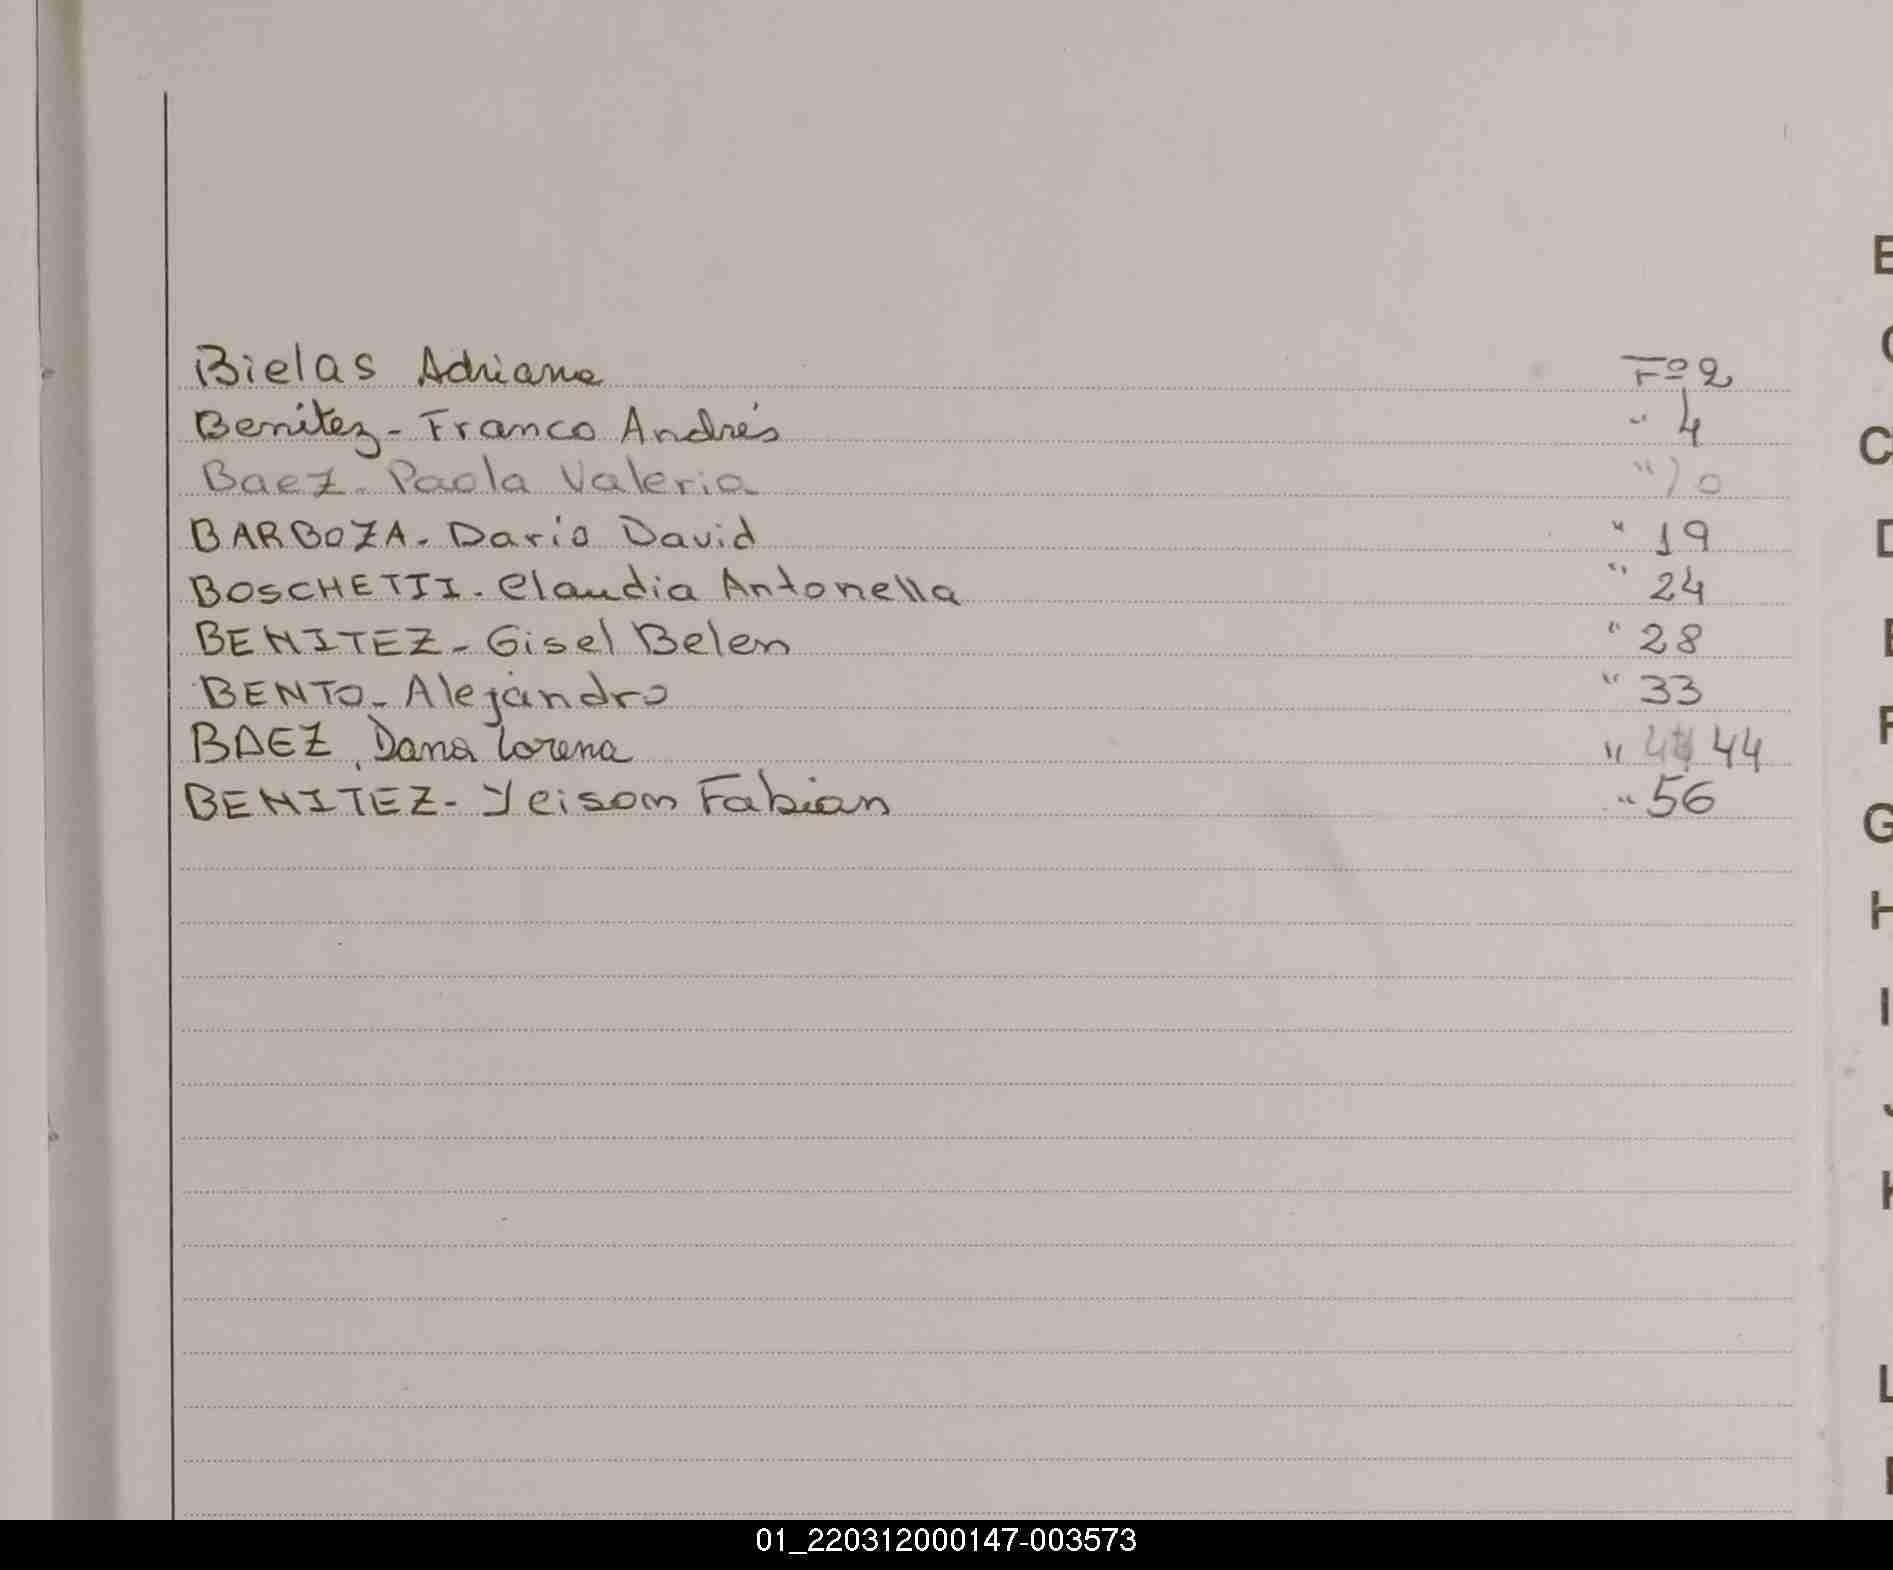 Bielas Adriana Fº 2
Benítez - Franco Andrés " 4
Baez - Paola Valeria " 10
BARBOZA - Darío David " 19
BOSCHETTI - Claudia Antonella " 24
BENITEZ - Gisel Belen " 28
BENTO - Alejandro " 33
BAEZ, Dana Lorena " 44
BENITEZ - Yeison Fabian " 56
B
C
C
D
E
F
G
H
I
J
K
L
01_220312000147-003573